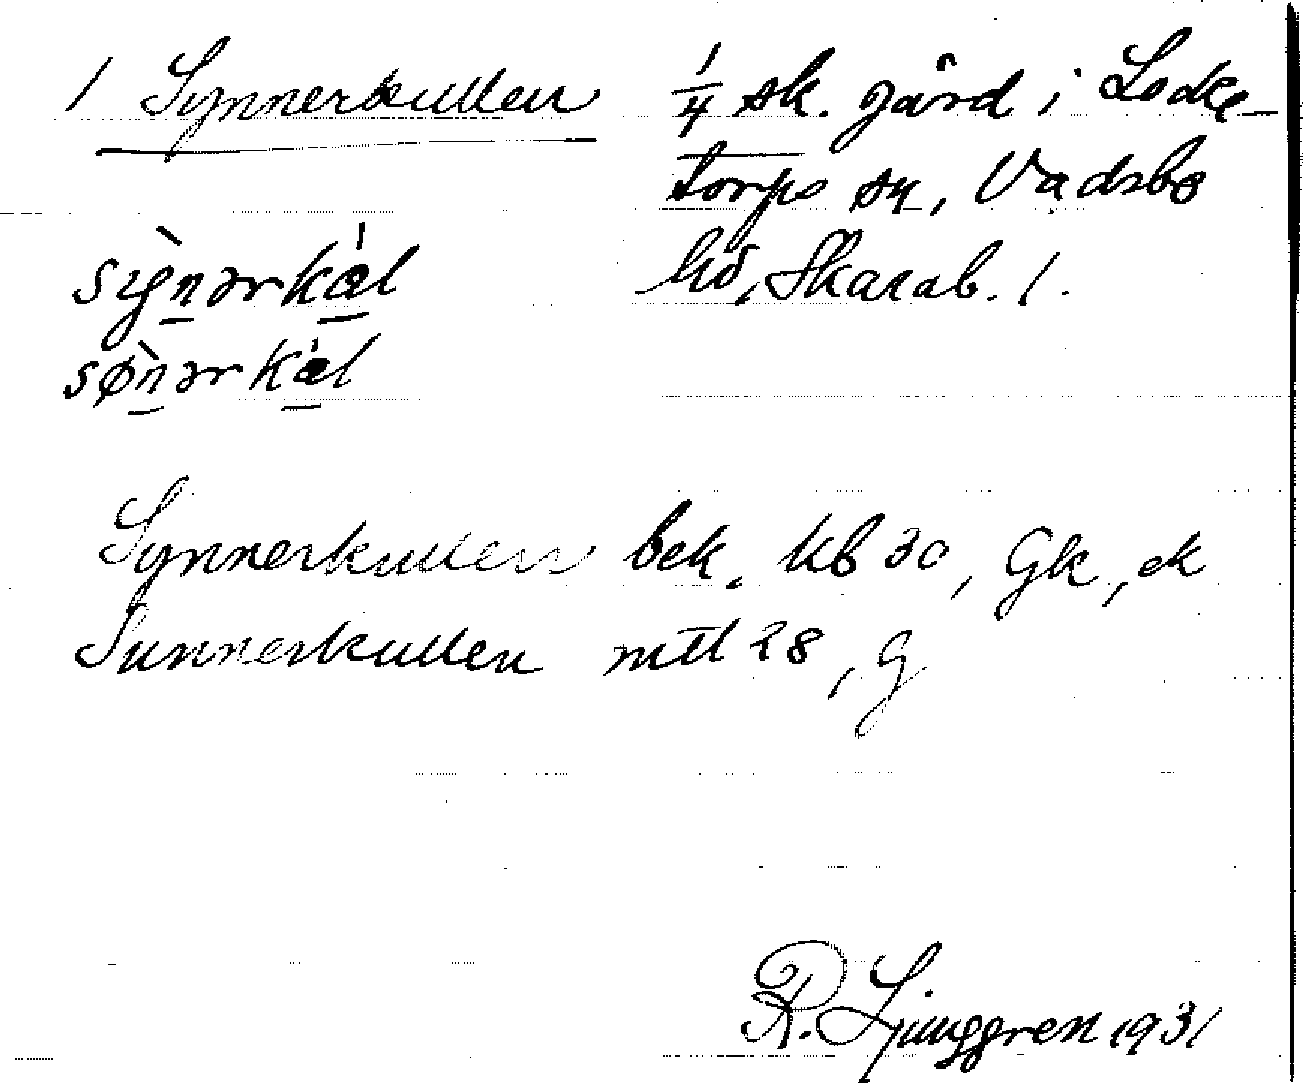 1 Synnerkullen
1/4 sk. gård i Locke-
torps sn, Vadsbo
hd, Skarab. l.
synərkæl
sønərkæl
Synnerkullen bek. kb 30, Gk, ek
Sunnerkullen mtl 28, G
R. Ljunggren 1931